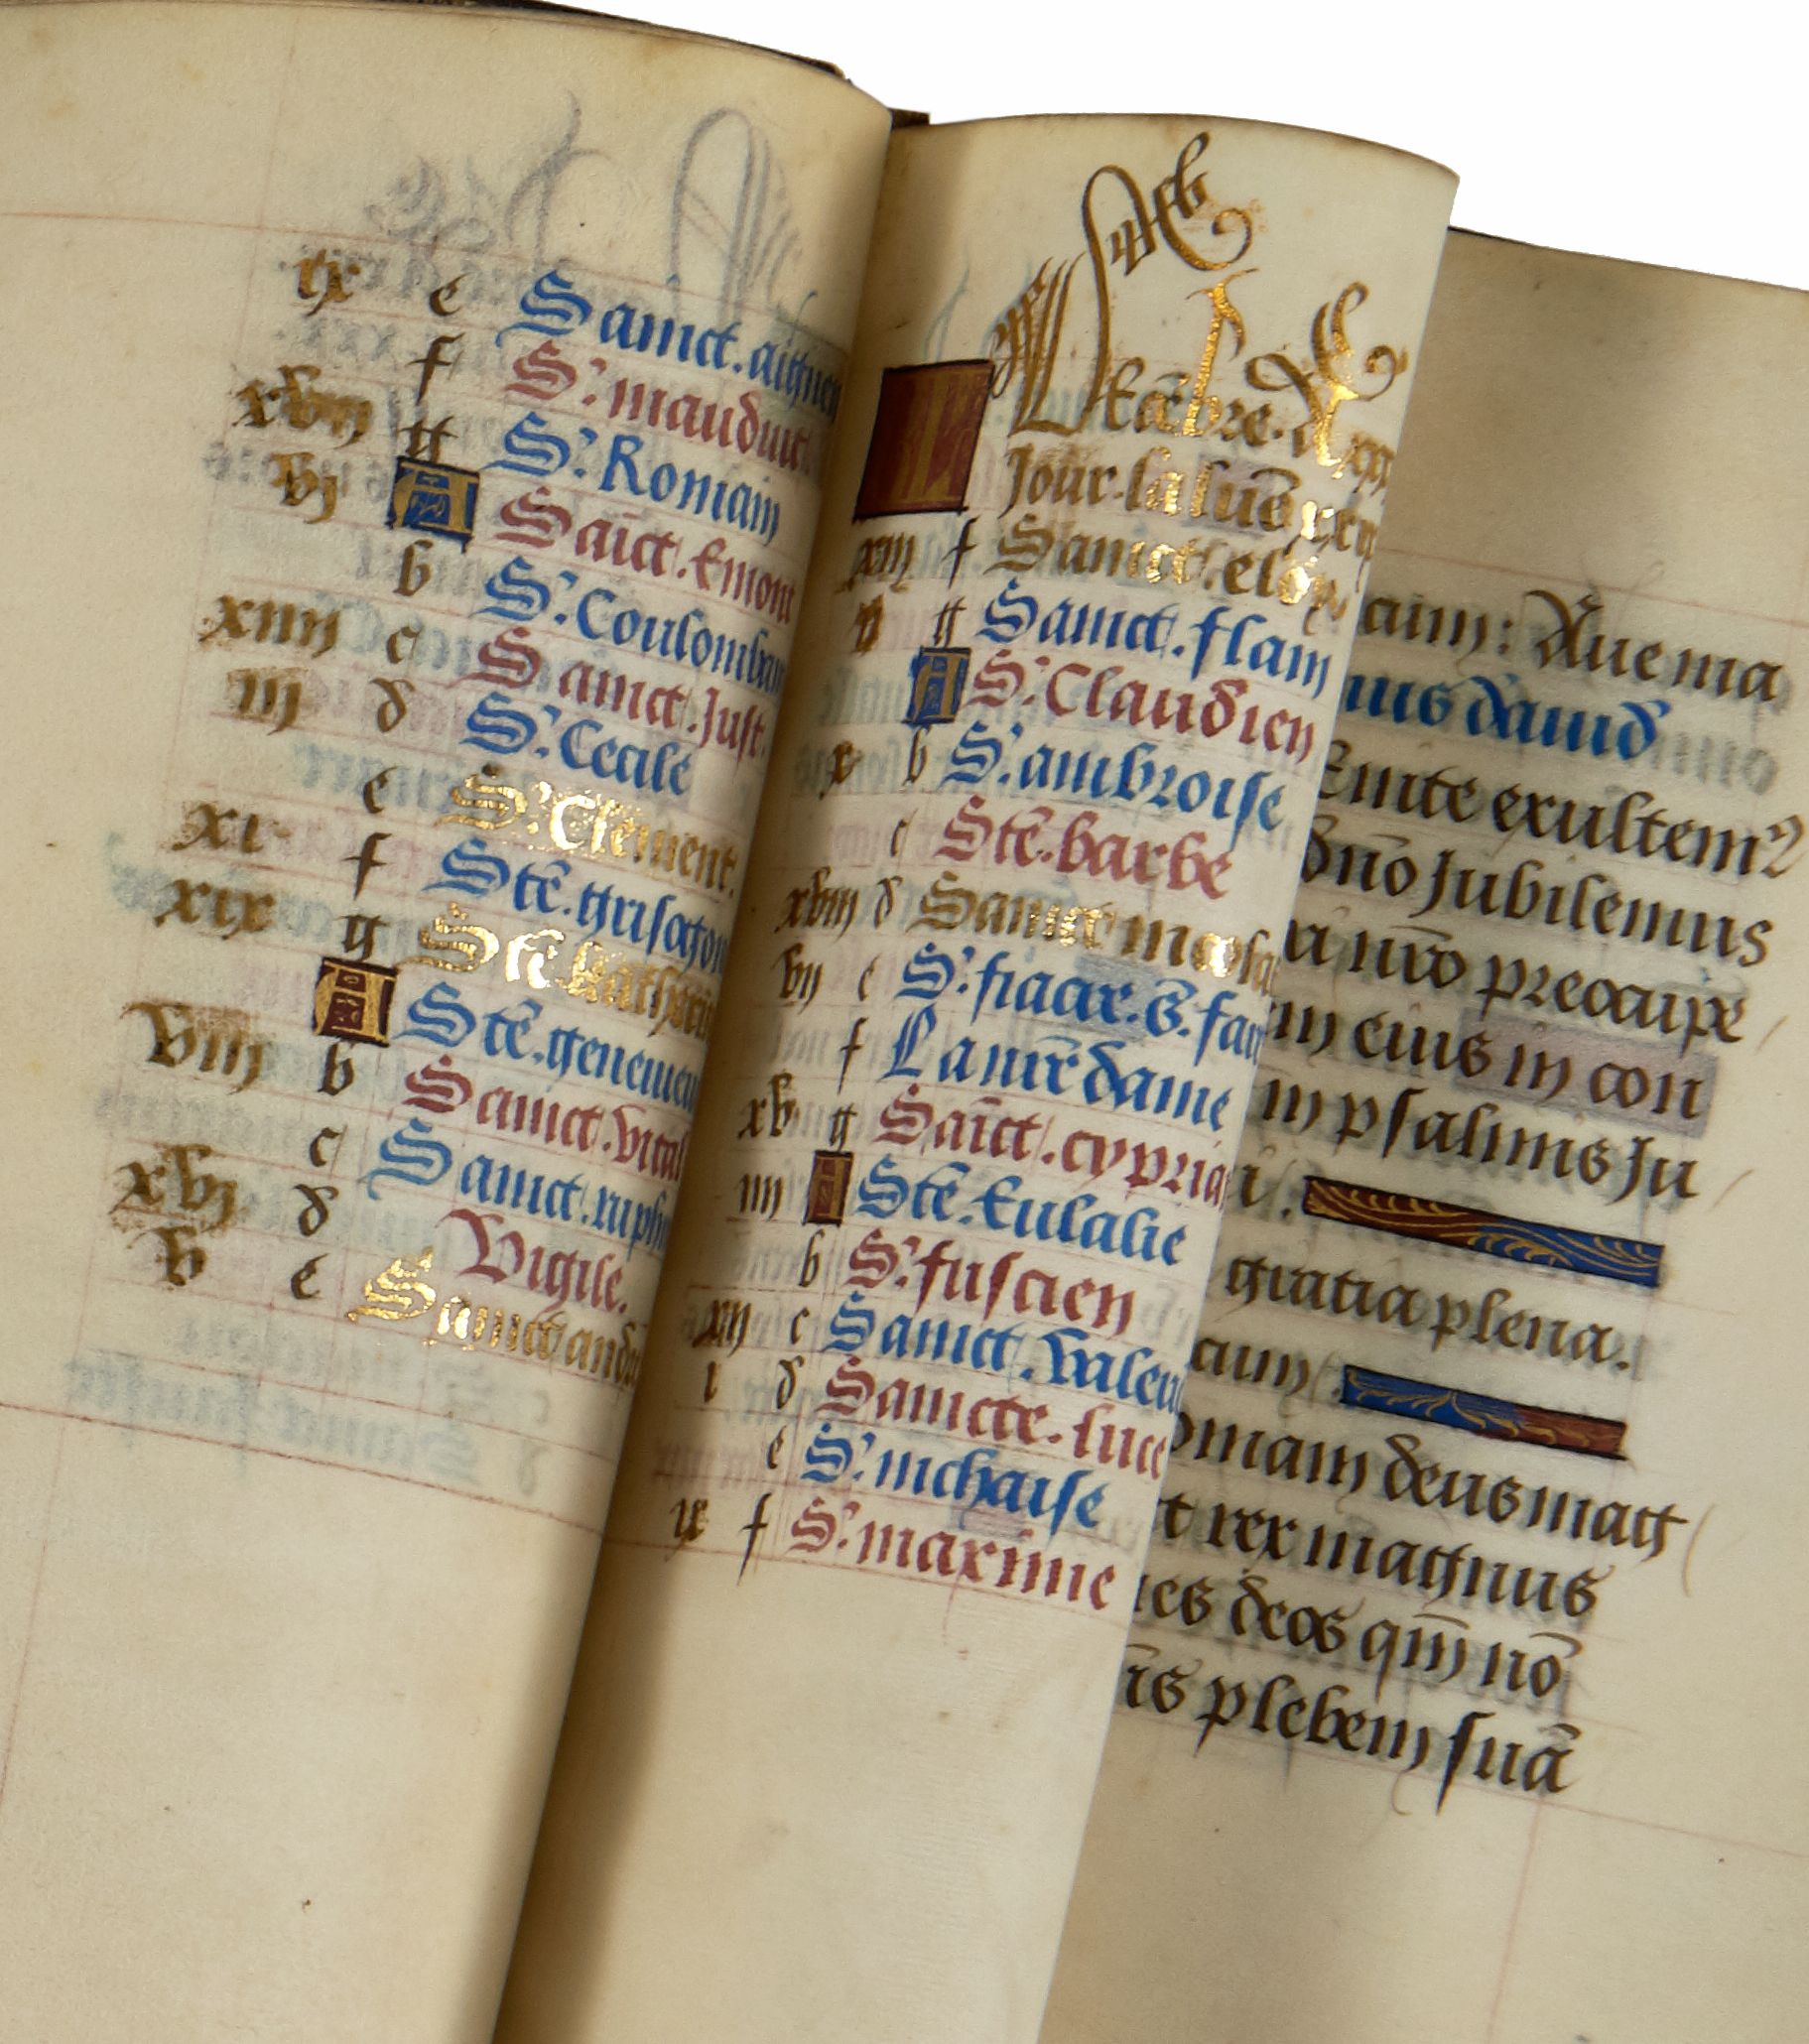 ix e Sainct. aignen
f S'. mauduit.
xviij g S'. Romain
vj A Saīct. Emont
b S'. Coulomban
xiiij c Sainct. Just.
iij d S'. Cecile
e S'. Clement.
xi f Stē. grisogon
xix g Stē. katheri
A Stē. geneuieu
viij b Sainct. vital
c Sainct. ruph
xvj d Vigile.
v e Sainct andri
Decēbre. a xxx
Jour. la lune xxx
xiij f Sainct. eloy
ij g Sainct. flam
A S'. Claudien
x b S'. ambroise
c Stē. barbe
xviij d Sainct nicola
vij e S'. fiacre. s. far
f La nrē dame
xv g Saīct. cypria
iiij A Stē. Eulalie
b S'. fuscien
xij c Sainct. valeri
i d Saincte. luce
e S'. nichaise
ix f S'. maxime
aim: Aue ma
mus dauid
Enite exultem
dnō Jubilemus
ri nrō preocupē
m eius in con
in psalmis Ju
i.
gratia plena.
cum
oniam deus mag
t rex magnus
es deos qm̄ nō
īs plebem suā